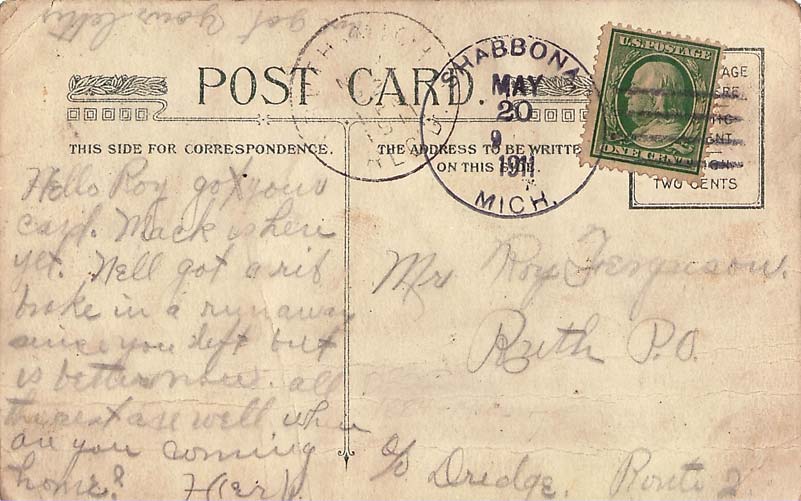 got your letter
POST CARD.
THIS SIDE FOR CORRESPONDENCE.
THE ADDRESS TO BE WRITTEN
ON THIS SIDE.
SHABBONA
MAY
20
9
1911
MICH.
RUTH MICH
REC'D
U.S. POSTAGE
ONE CENT
TWO CENTS
Hello Roy got your
card. Mack is here
yet. Nell got a rib
broke in a runaway
since you left but
is better now. all
the rest are well when
are you comming
home?
Mr Roy Ferguson.
Ruth P.O.
c/o Dredge. Route 2